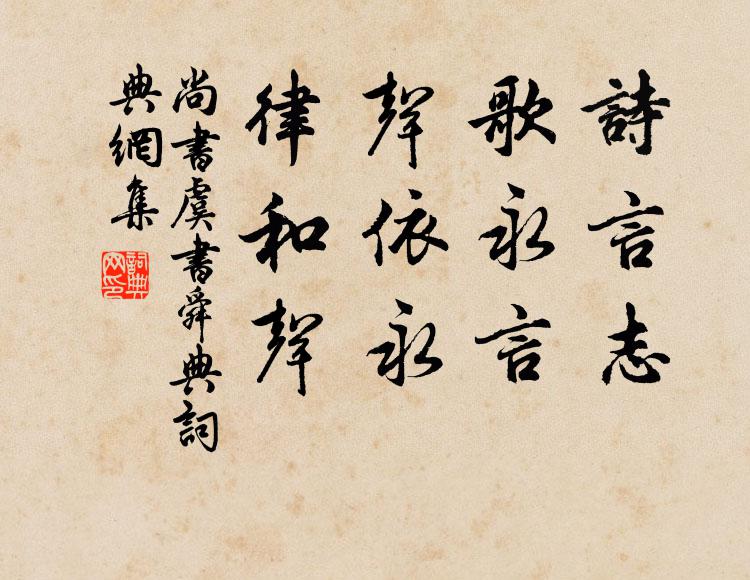 詩言志
歌永言
聲依永
律和聲
尚書虞書舜典詞
典網集
詞典
网印